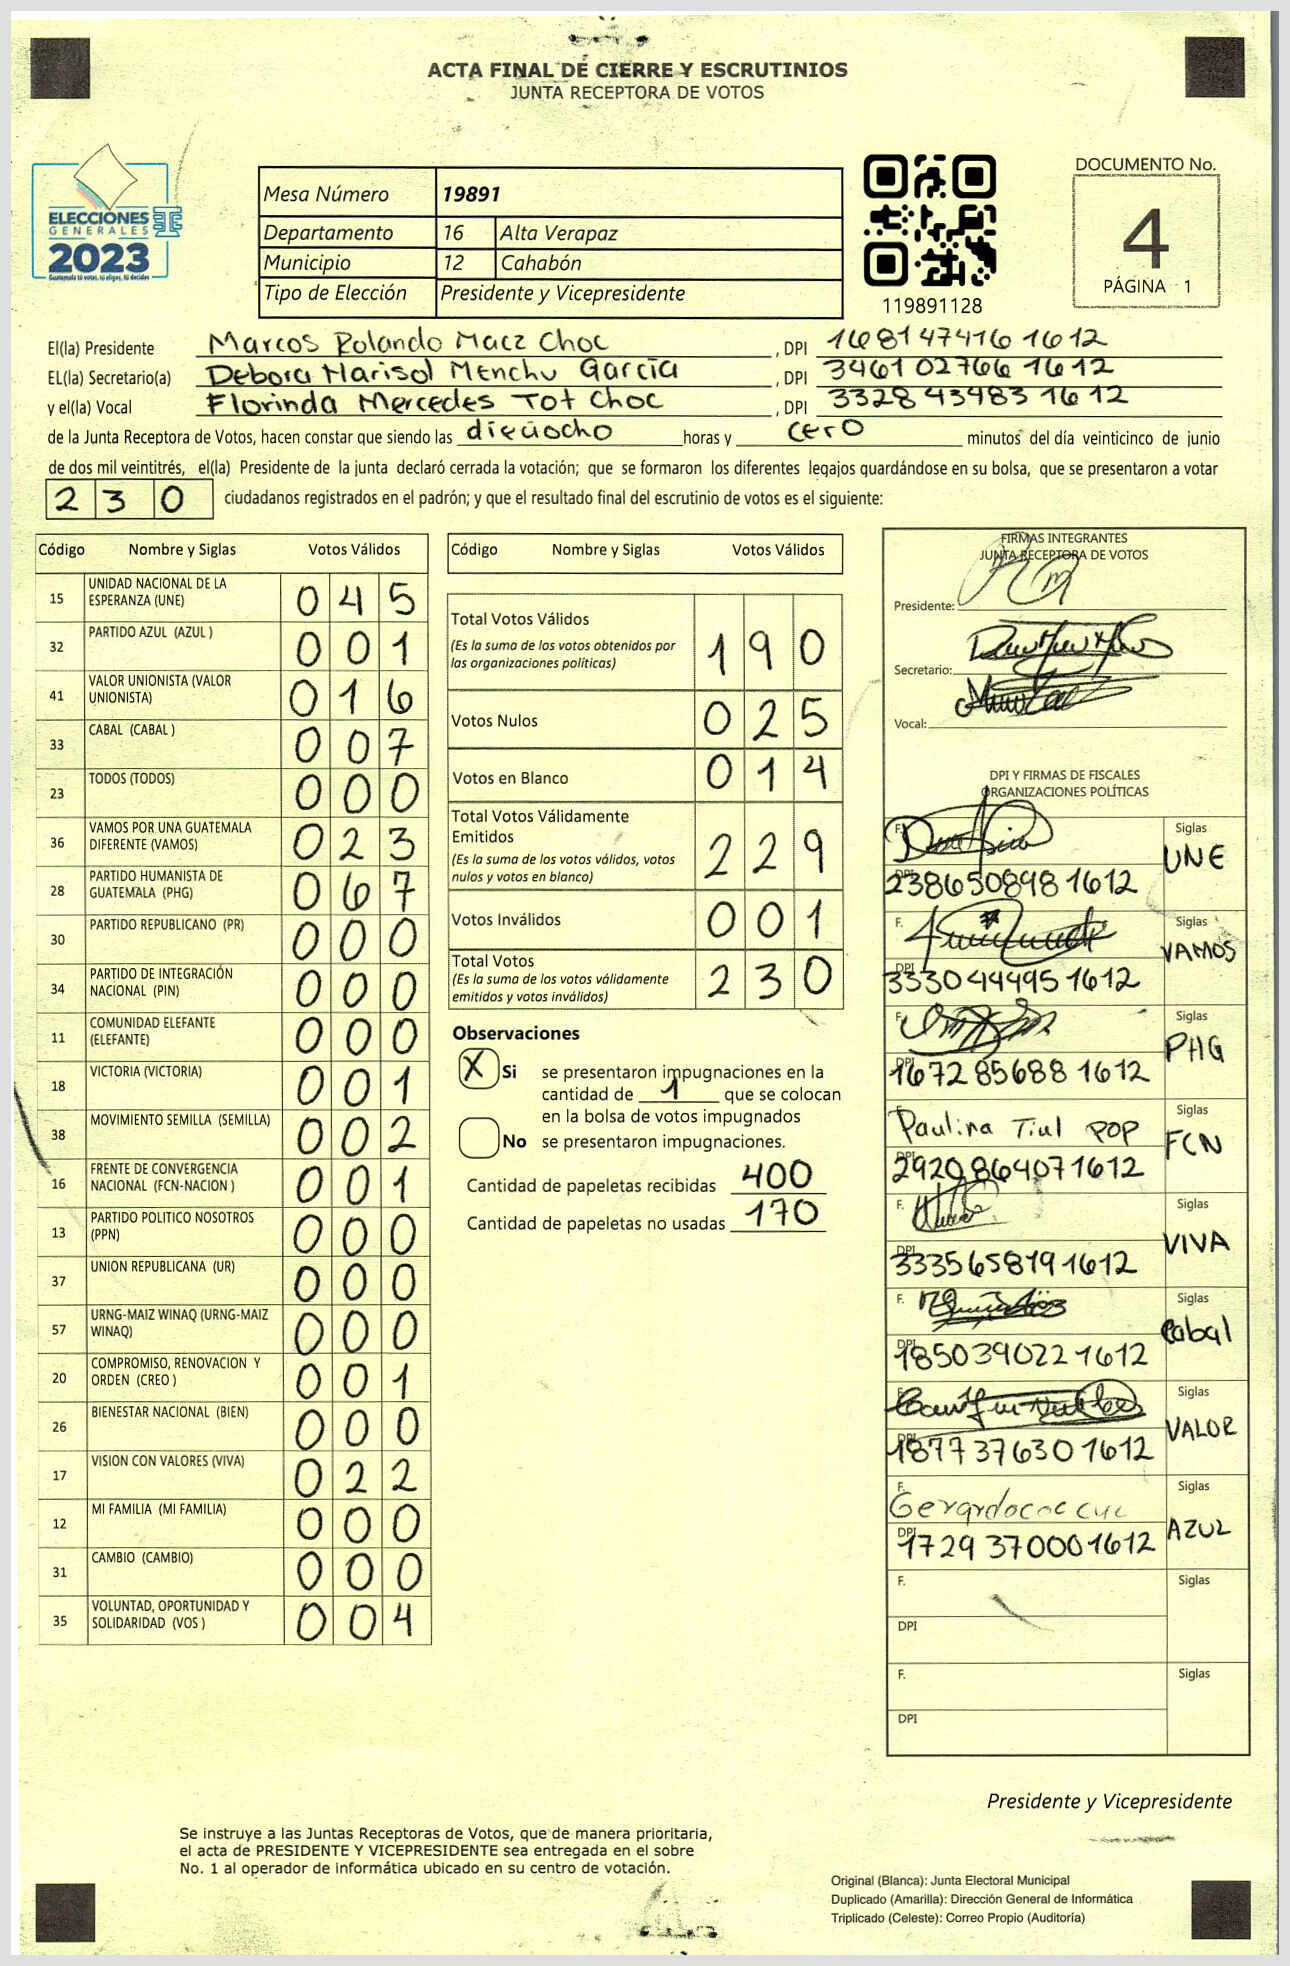 ACTA FINAL DE CIERRE Y ESCRUTINIOS
JUNTA RECEPTORA DE VOTOS
ELECCIONES
GENERALES
2023
Guatemala tú votas, tú eliges, tú decides
Mesa Número 19891
Departamento 16 Alta Verapaz
Municipio 12 Cahabón
Tipo de Elección Presidente y Vicepresidente
119891128
DOCUMENTO No.
4
PÁGINA 1
El(la) Presidente Marcos Rolando Macz Choc , DPI 1681474161612
EL(la) Secretario(a) Debora Marisol Menchu García , DPI 3461027661612
y el(la) Vocal Florinda Mercedes Tot Choc , DPI 3328434831612
de la Junta Receptora de Votos, hacen constar que siendo las dieciocho horas y cero minutos del día veinticinco de junio
de dos mil veintitrés, el(la) Presidente de la junta declaró cerrada la votación; que se formaron los diferentes legajos guardándose en su bolsa, que se presentaron a votar
230 ciudadanos registrados en el padrón; y que el resultado final del escrutinio de votos es el siguiente:
Código Nombre y Siglas Votos Válidos
15 UNIDAD NACIONAL DE LA ESPERANZA (UNE) 045
32 PARTIDO AZUL (AZUL ) 001
41 VALOR UNIONISTA (VALOR UNIONISTA) 016
33 CABAL (CABAL ) 007
23 TODOS (TODOS) 000
36 VAMOS POR UNA GUATEMALA DIFERENTE (VAMOS) 023
28 PARTIDO HUMANISTA DE GUATEMALA (PHG) 067
30 PARTIDO REPUBLICANO (PR) 000
34 PARTIDO DE INTEGRACIÓN NACIONAL (PIN) 000
11 COMUNIDAD ELEFANTE (ELEFANTE) 000
18 VICTORIA (VICTORIA) 001
38 MOVIMIENTO SEMILLA (SEMILLA) 002
16 FRENTE DE CONVERGENCIA NACIONAL (FCN-NACION ) 001
13 PARTIDO POLITICO NOSOTROS (PPN) 000
37 UNION REPUBLICANA (UR) 000
57 URNG-MAIZ WINAQ (URNG-MAIZ WINAQ) 000
20 COMPROMISO, RENOVACION Y ORDEN (CREO ) 001
26 BIENESTAR NACIONAL (BIEN) 000
17 VISION CON VALORES (VIVA) 022
12 MI FAMILIA (MI FAMILIA) 000
31 CAMBIO (CAMBIO) 000
35 VOLUNTAD, OPORTUNIDAD Y SOLIDARIDAD (VOS ) 004
Código Nombre y Siglas Votos Válidos
Total Votos Válidos 190
(Es la suma de los votos obtenidos por
las organizaciones políticas)
Votos Nulos 025
Votos en Blanco 014
Total Votos Válidamente
Emitidos 229
(Es la suma de los votos válidos, votos
nulos y votos en blanco)
Votos Inválidos 001
Total Votos 230
(Es la suma de los votos válidamente
emitidos y votos inválidos)
Observaciones
X Si se presentaron impugnaciones en la
cantidad de 1 que se colocan
en la bolsa de votos impugnados
No se presentaron impugnaciones.
Cantidad de papeletas recibidas 400
Cantidad de papeletas no usadas 170
FIRMAS INTEGRANTES
JUNTA RECEPTORA DE VOTOS
Presidente:
Secretario:
Vocal:
DPI Y FIRMAS DE FISCALES
ORGANIZACIONES POLÍTICAS
F. Siglas UNE
DPI 2386508981612
F. Siglas VAMOS
DPI 3330444951612
F. Siglas PHG
DPI 1672856881612
Paulina Tiul POP Siglas FCN
DPI 2920864071612
F. Siglas VIVA
DPI 3335658191612
F. Siglas Cabal
DPI 1850390221612
F. Siglas VALOR
DPI 1877376301612
F. Gerardo Siglas AZUL
DPI 1729370001612
F. Siglas
DPI
F. Siglas
DPI
Presidente y Vicepresidente
Se instruye a las Juntas Receptoras de Votos, que de manera prioritaria,
el acta de PRESIDENTE Y VICEPRESIDENTE sea entregada en el sobre
No. 1 al operador de informática ubicado en su centro de votación.
Original (Blanca): Junta Electoral Municipal
Duplicado (Amarilla): Dirección General de Informática
Triplicado (Celeste): Correo Propio (Auditoría)